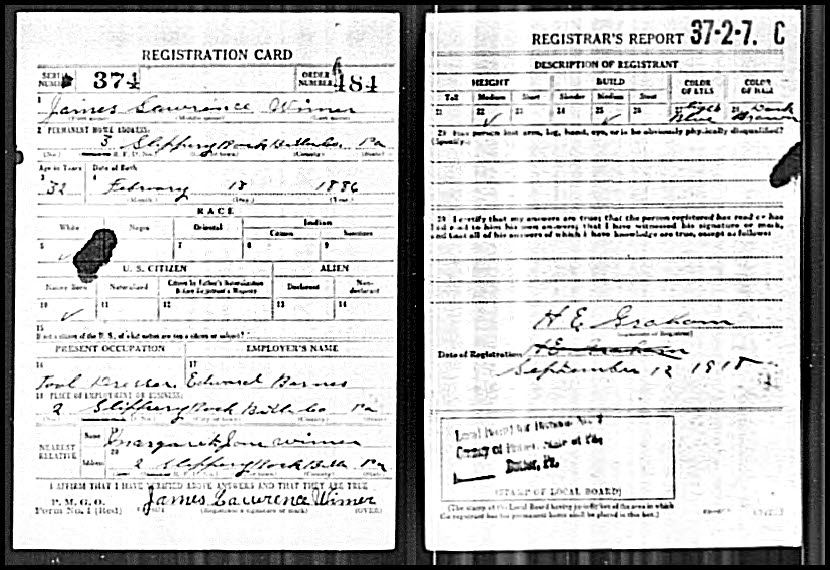 REGISTRATION CARD
SERIAL NUMBER 374 ORDER NUMBER 484
1 James Lawrence Wimer
(First name) (Middle name) (Last name)
2 PERMANENT HOME ADDRESS:
3 Slippery Rock Butler Co Pa
(No.) R. F. D. No. (County) (State)
Age in Years Date of Birth
3 4
32 February 18 1886
(Month.) (Day.) (Year.)
RACE
White Negro Oriental Indian
Citizen Noncitizen
5 ✓ 7 8 9
U. S. CITIZEN ALIEN
Native Born Naturalized Citizen by Father's Naturalization Before Registrant's Majority Declarant Non-declarant
10 ✓ 11 12 13 14
15
If not a citizen of the U. S., of what nation are you a citizen or subject?
PRESENT OCCUPATION EMPLOYER'S NAME
16 17
Tool Dresser Edward Barnes
18 PLACE OF EMPLOYMENT OR BUSINESS:
2 Slippery Rock Butler Co Pa
NEAREST RELATIVE Name 19 Margaret Jane Wimer
Address 20 2 Slippery Rock Butler Pa
I AFFIRM THAT I HAVE VERIFIED ABOVE ANSWERS AND THAT THEY ARE TRUE
P. M. G. O.
Form No. 1 (Red) James Lawrence Wimer
(Registrant's signature or mark) (OVER)
REGISTRAR'S REPORT 37-2-7. C
DESCRIPTION OF REGISTRANT
HEIGHT BUILD COLOR OF EYES COLOR OF HAIR
Tall Medium Short Slender Medium Stout
21 22 ✓ 23 24 25 ✓ 26 27 Light Blue 28 Dark Brown
29 Has person lost arm, leg, hand, eye, or is he obviously physically disqualified?
(Specify.)
30 I certify that my answers are true; that the person registered has read or has
had read to him his own answers; that I have witnessed his signature or mark,
and that all of his answers of which I have knowledge are true, except as follows:
H E Graham
(Signature of Registrar)
Date of Registration H E Graham
September 12 1918
Local Board for Division No. 2
County of Butler, State of Pa.
Butler, Pa.
(STAMP OF LOCAL BOARD)
(The stamp of the Local Board having jurisdiction of the area in which
the registrant has his permanent home shall be placed in this box.)